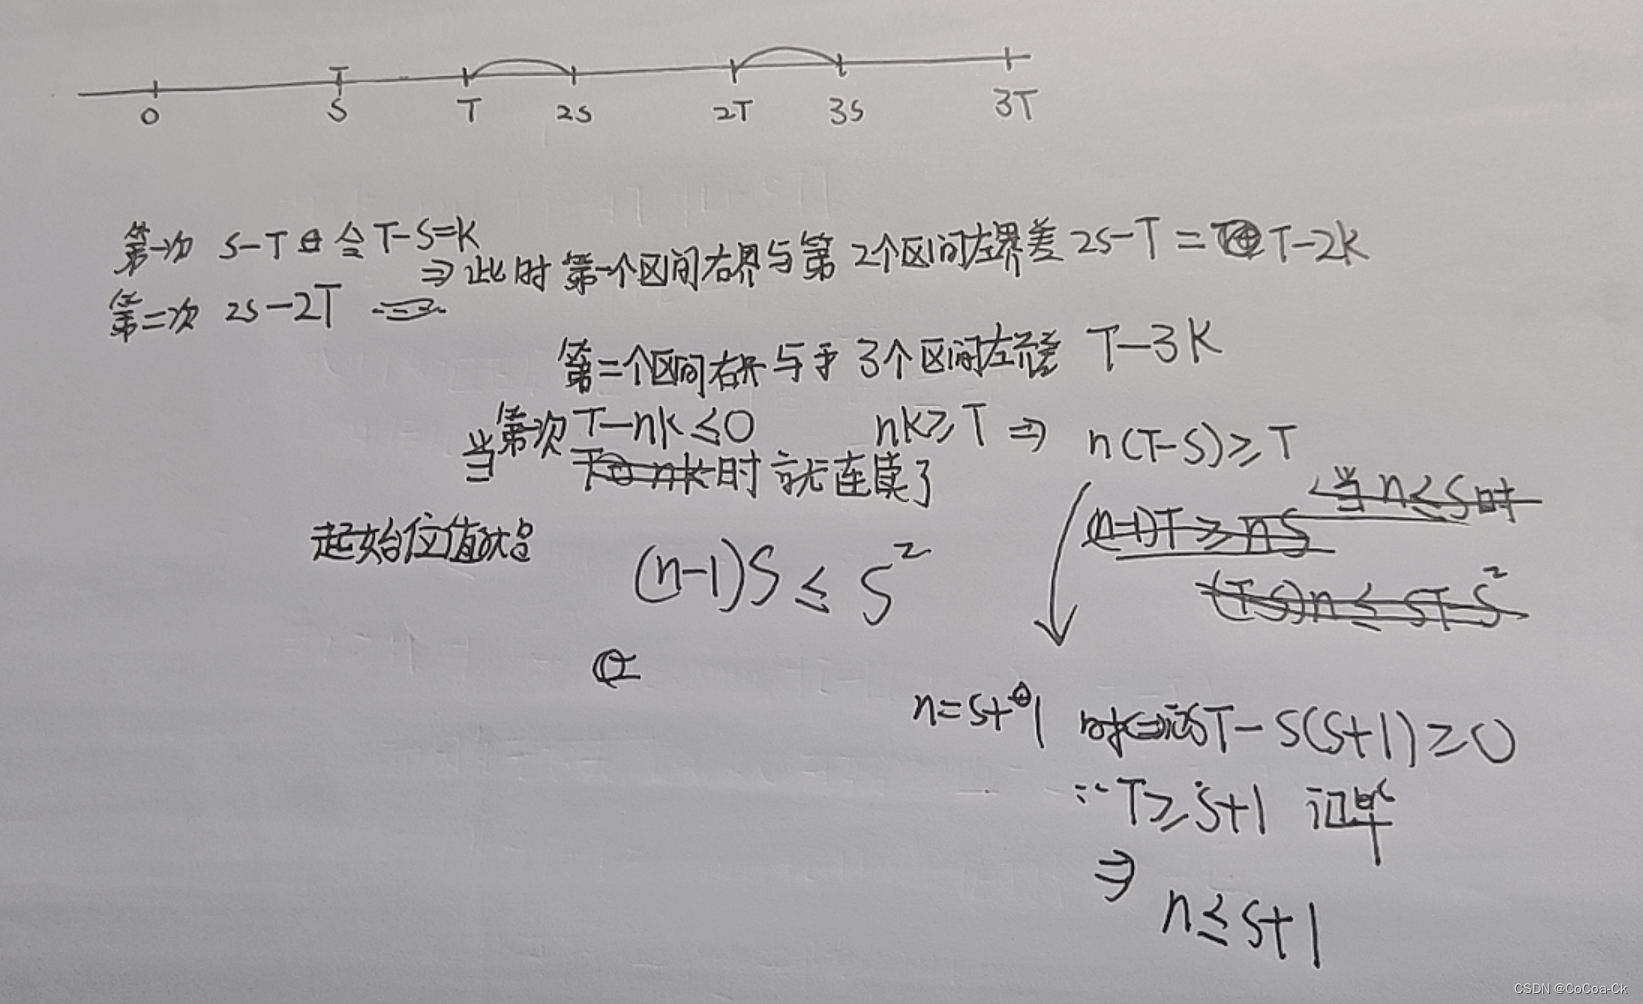 0 S T 2S 2T 3S 3T
第一次 S-T 令T-S=K
⇒此时 第一个区间右界与第2个区间左界差 2S-T = T-2K
第二次 2S-2T
第二个区间右界与于3个区间左界差 T-3K
当第次 T-nk≤0 nk≥T ⇒ n(T-S)≥T
时就连续了
当n≤S时
(n-1)T≥nS
起始位值就是 (n-1)S≤S²
(T-S)n≤ST-S²
n=S+1 时 ST-S(S+1)≥0
∵ T≥S+1 证毕
⇒
n≤S+1
CSDN @CoCoa-Ck